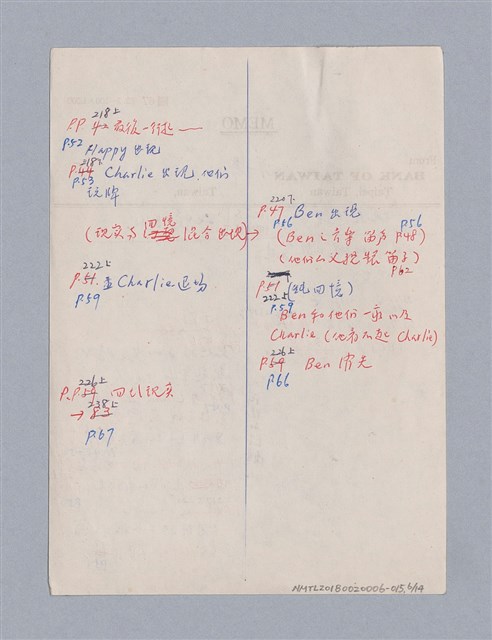 218上
P.P. 42 最後一行起 —
P.52 Happy 出現
218下
P.44 Charlie 出現、他们
P.53
玩牌
回境
(現实与 混合出現) →
222上
P.51. Charlie 退场
P.59
226上
P.P.54 回到現实
238上
→ 83
P.67
220下
P.47 Ben 出現
P.56 P.56
(Ben 之前笛声 P.48)
(他们的父親 笛子)
P.62
P.51 (純回境)
222上
P.59
Ben 和他们一家以及
Charlie (他看不起 Charlie)
226上
P.54 Ben 消失
P.66
MEMO
BANK OF TAIWAN
NMTL20180020006-015, 6/14